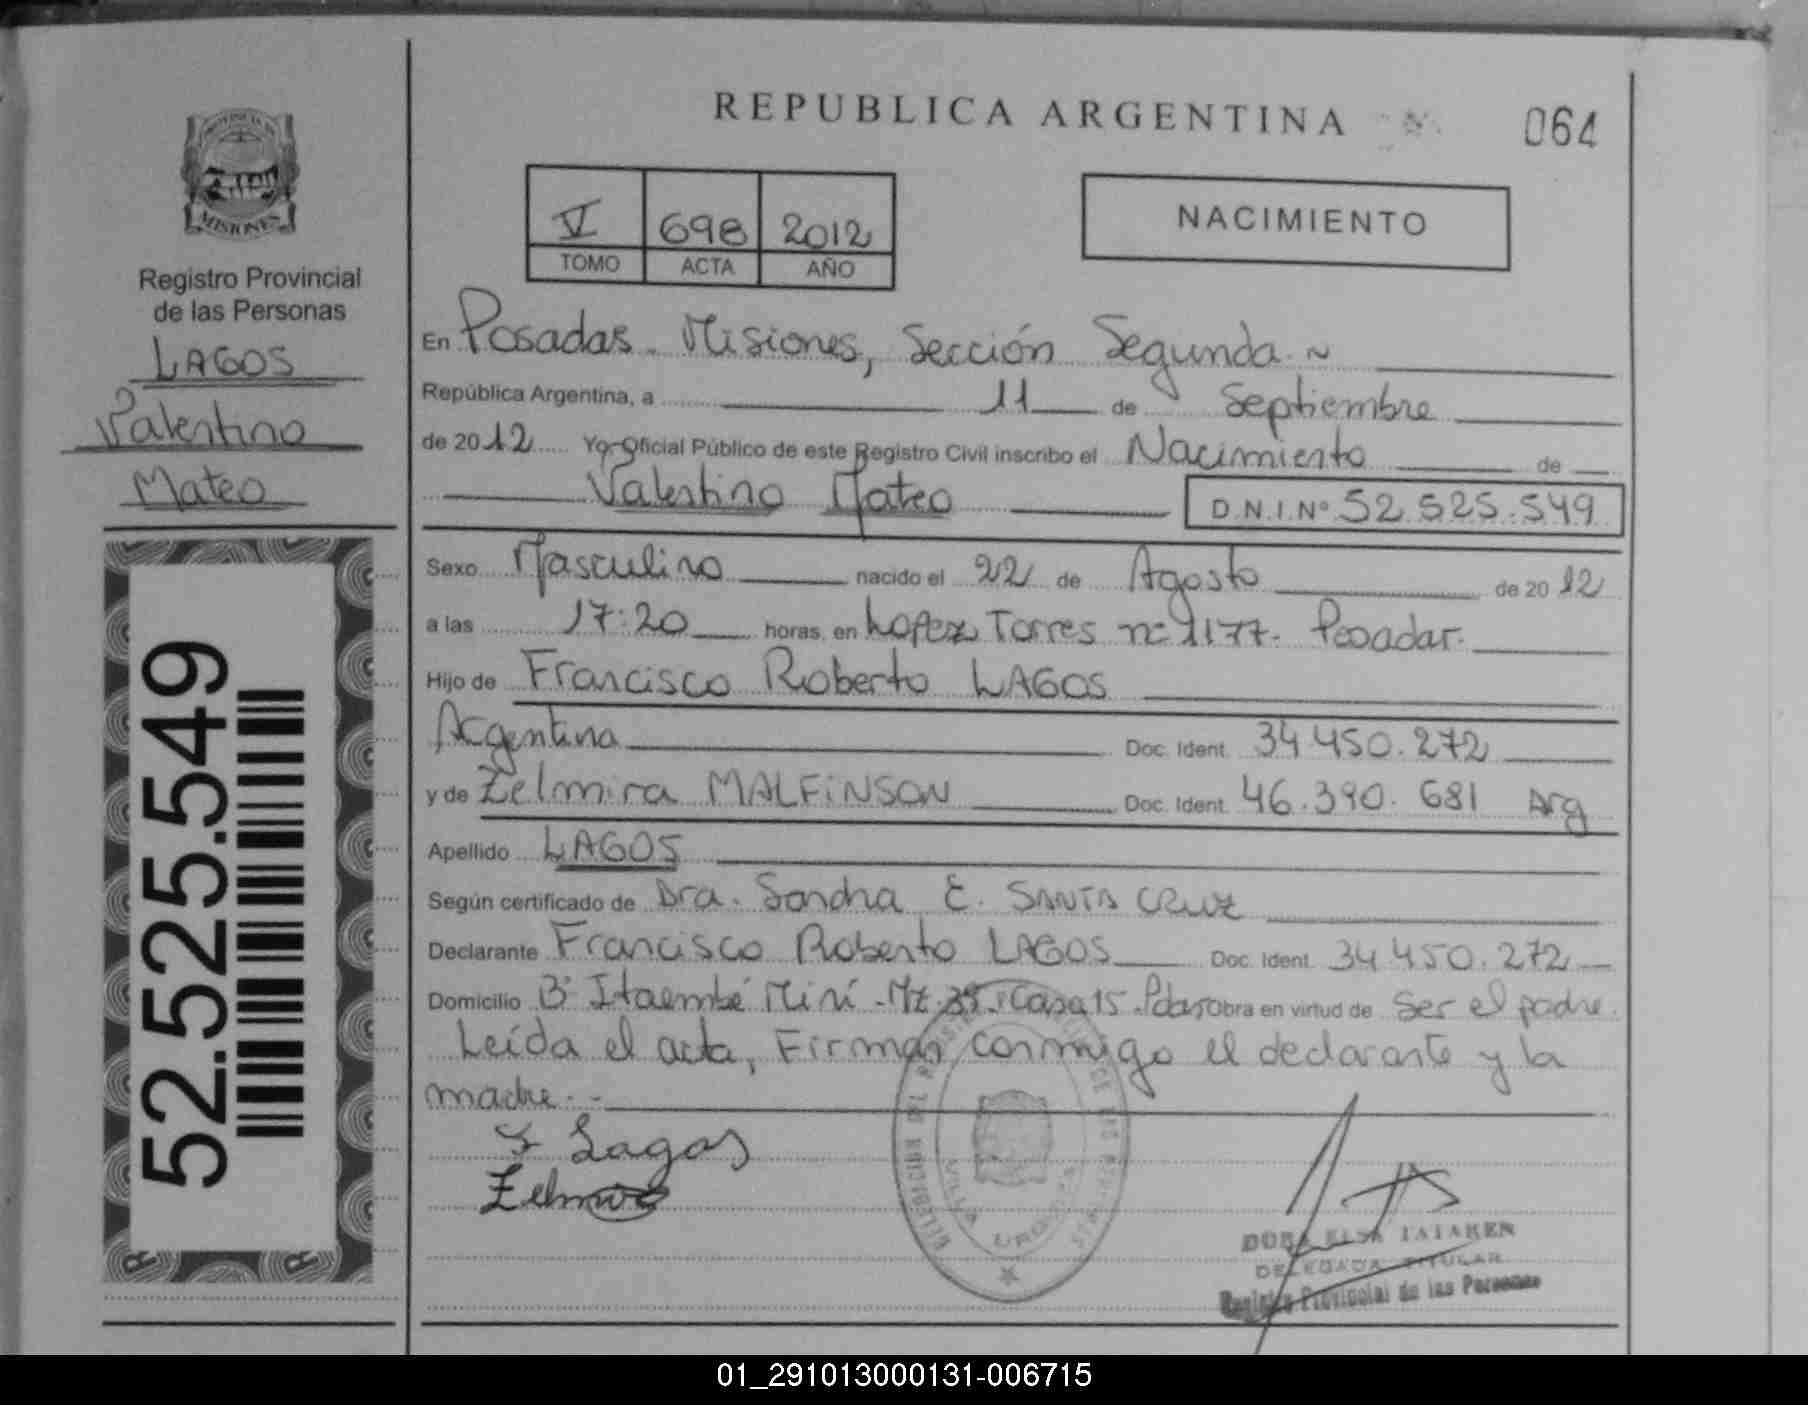 REPUBLICA ARGENTINA
064
PROVINCIA DE
MISIONES
Registro Provincial
de las Personas
LAGOS
Valentino
Mateo
52.525.549
V 698 2012
TOMO ACTA AÑO
NACIMIENTO
En Posadas. Misiones, Sección Segunda.
República Argentina, a 11 de Septiembre
de 2012 Yo Oficial Público de este Registro Civil inscribo el Nacimiento de
Valentino Mateo D.N.I.Nº 52.525.549
Sexo Masculino nacido el 22 de Agosto de 2012
a las 17:20 horas, en Lopez Torres nº 1177. Posadas.
Hijo de Francisco Roberto LAGOS
Argentina Doc. Ident. 34.450.272
y de Zelmira MALFINSON Doc. Ident. 46.390.681 Arg
Apellido LAGOS
Según certificado de Dra. Sandra E. SANTA CRUZ
Declarante Francisco Roberto LAGOS Doc. Ident. 34.450.272
Domicilio Bº Itaembé Miní - Mz. 39. Casa 15. Pdas Obra en virtud de Ser el padre.
Leída el acta, Firman conmigo el declarante y la
madre.
F Lagos
Zelmira
VILLA URQUIZA
DORA ELSA TATAREN
DELEGADA TITULAR
Registro Provincial de las Personas
01_291013000131-006715